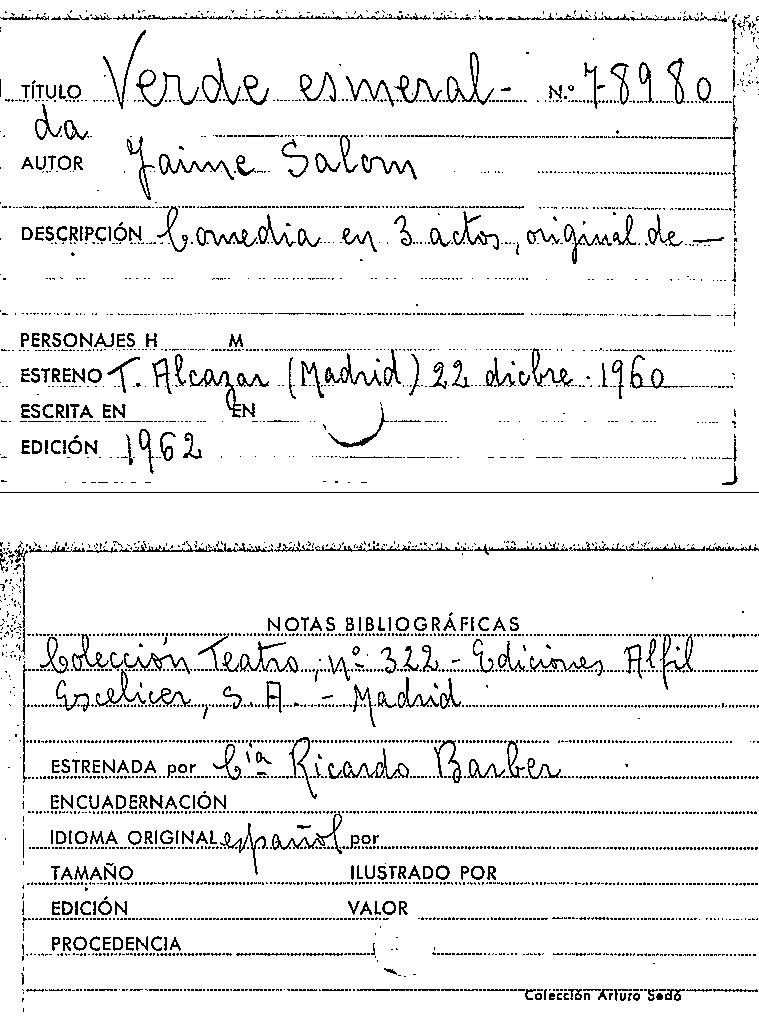 TÍTULO Verde esmeral- N.º 78980
da
AUTOR Jaime Salom
DESCRIPCIÓN Comedia en 3 actos, original de —
PERSONAJES H M
ESTRENO T. Alcazar (Madrid) 22 dicbre. 1960
ESCRITA EN EN
EDICIÓN 1962
NOTAS BIBLIOGRÁFICAS
Colección Teatro, nº 322 - Ediciones Alfil
Escelicer, S. A. - Madrid
ESTRENADA por Cía Ricardo Barber
ENCUADERNACIÓN
IDIOMA ORIGINAL español por
TAMAÑO ILUSTRADO POR
EDICIÓN VALOR
PROCEDENCIA
Colección Arturo Sedó